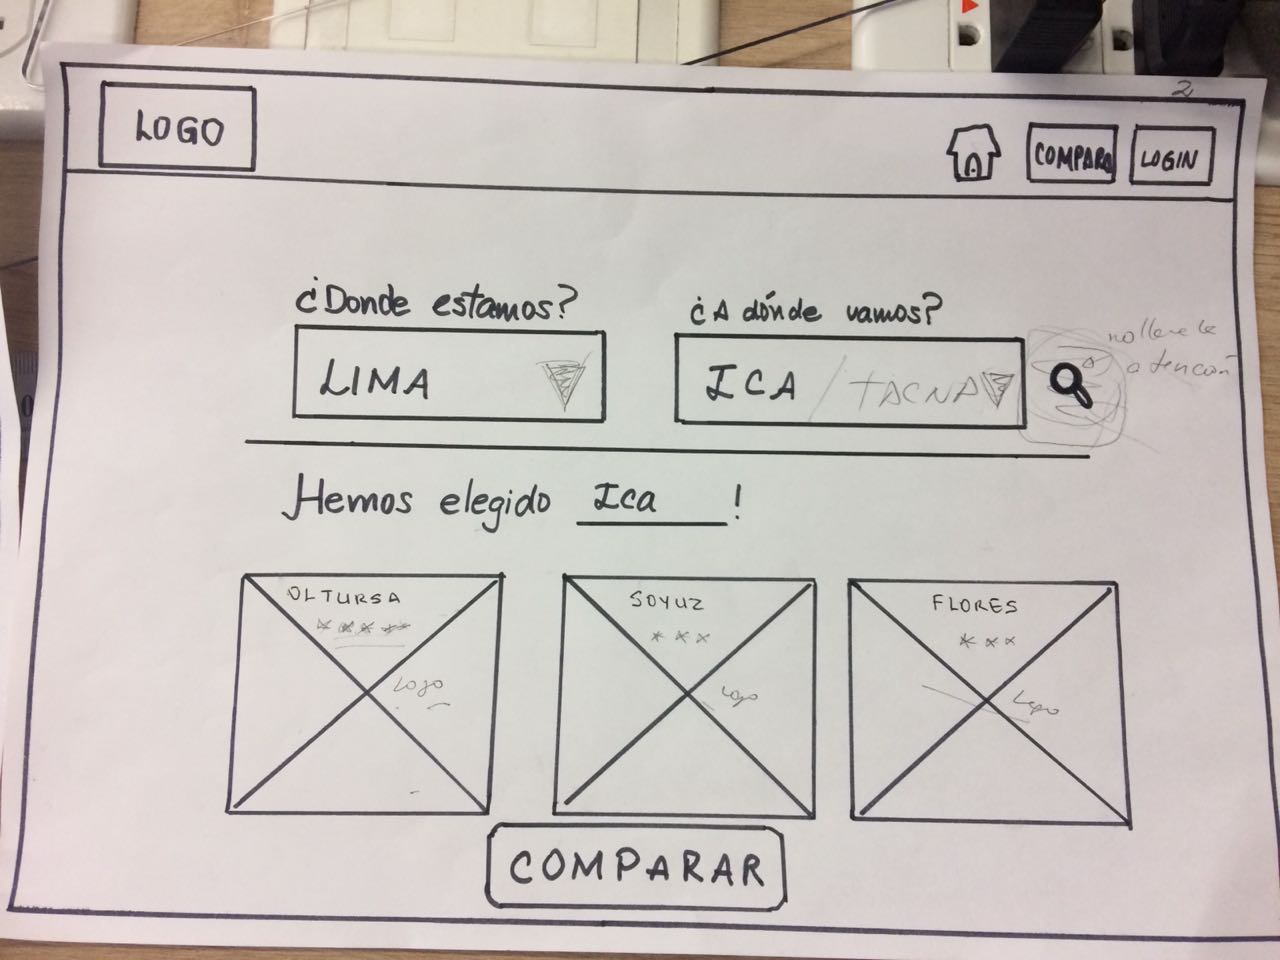 2
LOGO
COMPARA
LOGIN
¿Donde estamos?
¿A dónde vamos?
LIMA
ICA / TACNA
no lleve la
atención
Hemos elegido Ica !
OLTURSA
SOYUZ
FLORES
Logo
Logo
Logo
COMPARAR